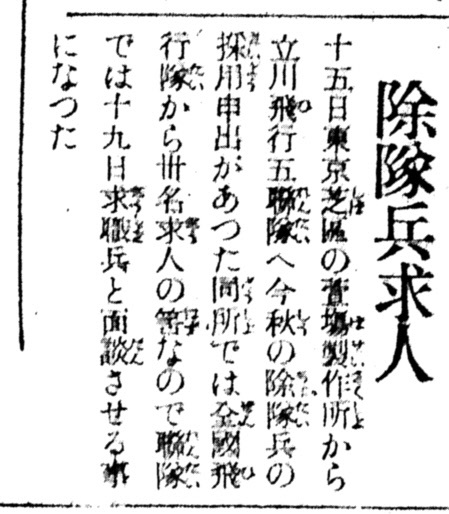 除隊兵求人
十五日東京芝區の萱場製作所から
立川飛行五聯隊へ今秋の除隊兵の
採用申出があつた同所では全國飛
行隊から卅名求人の筈なので聯隊
では十九日求職兵と面談させる事
になつた